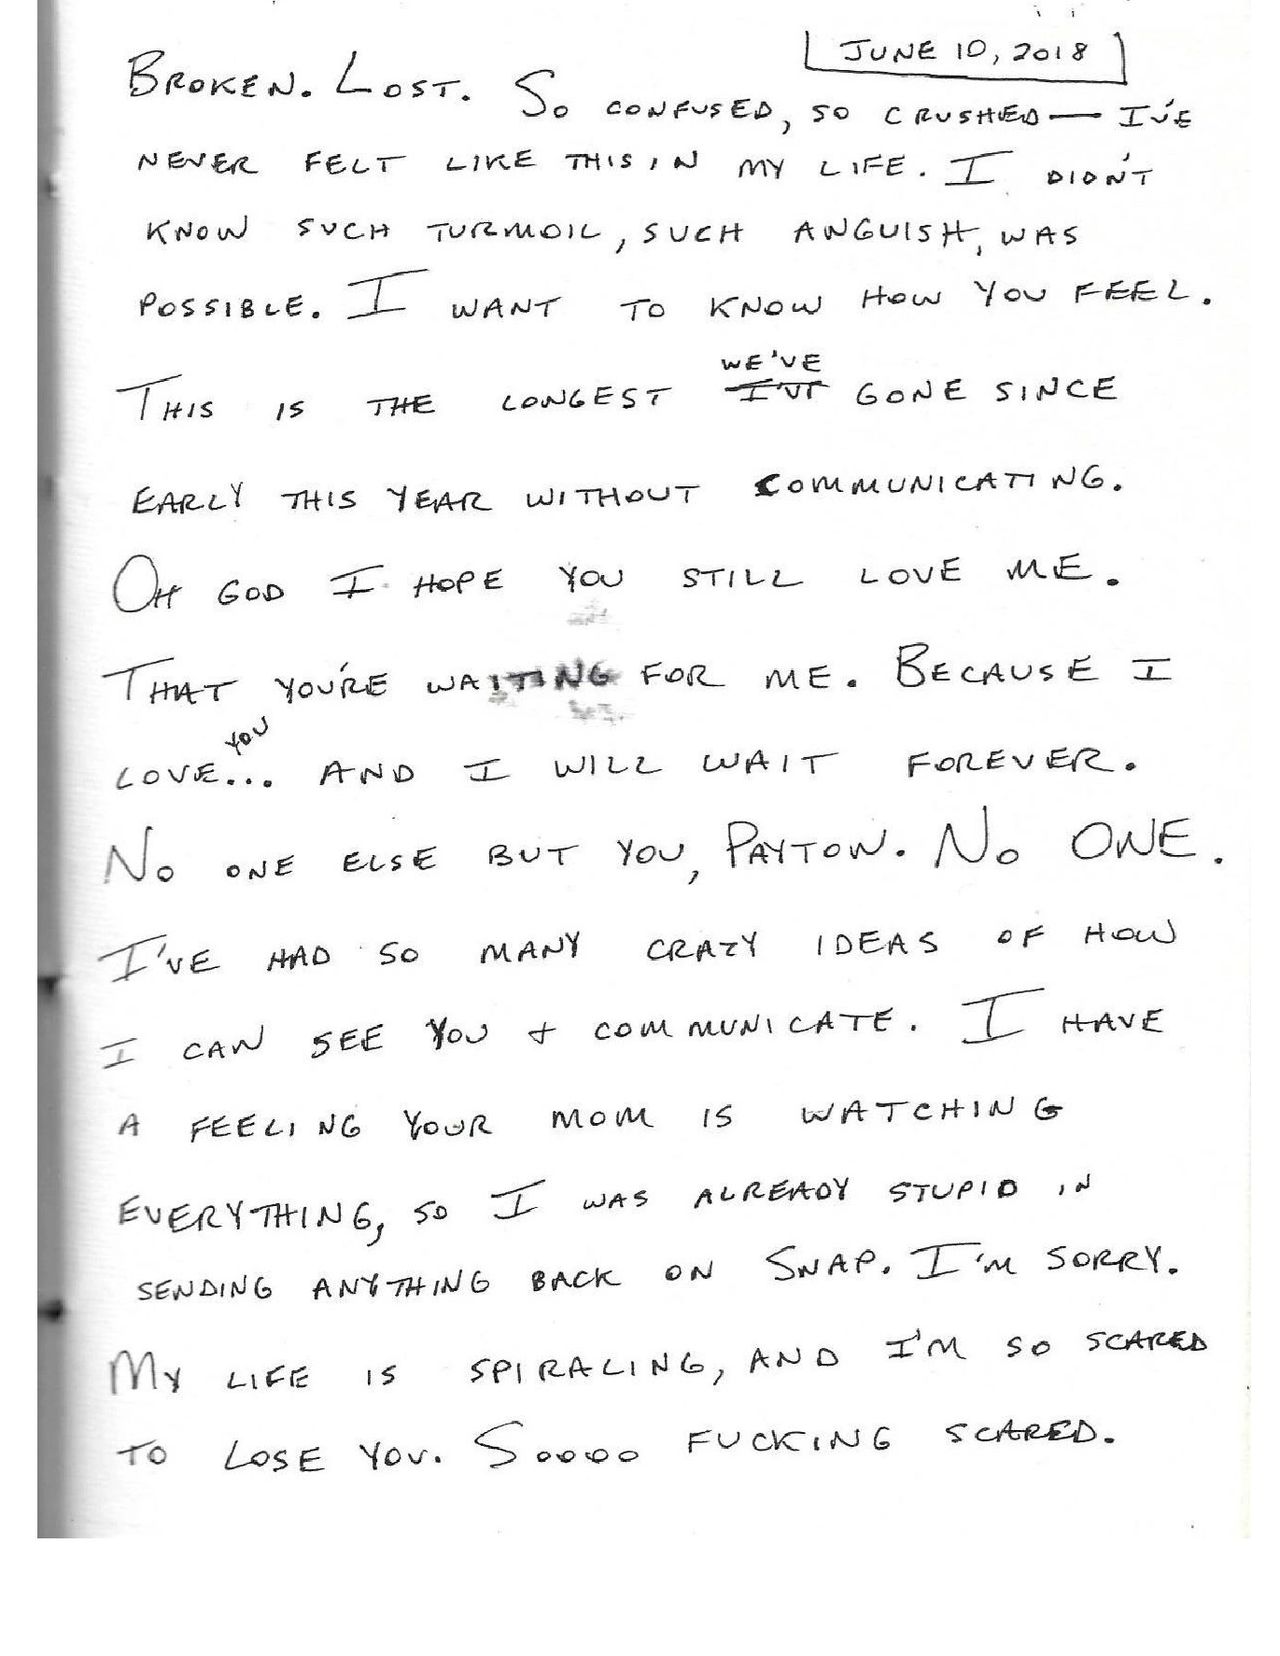 JUNE 10, 2018
BROKEN. LOST. SO CONFUSED, SO CRUSHED — I'VE
NEVER FELT LIKE THIS IN MY LIFE. I DIDN'T
KNOW SUCH TURMOIL, SUCH ANGUISH, WAS
POSSIBLE. I WANT TO KNOW HOW YOU FEEL.
WE'VE
THIS IS THE LONGEST I'VE GONE SINCE
EARLY THIS YEAR WITHOUT COMMUNICATING.
OH GOD I HOPE YOU STILL LOVE ME.
THAT YOU'RE WAITING FOR ME. BECAUSE I
YOU
LOVE... AND I WILL WAIT FOREVER.
NO ONE ELSE BUT YOU, PAYTON. NO ONE.
I'VE HAD SO MANY CRAZY IDEAS OF HOW
I CAN SEE YOU + COMMUNICATE. I HAVE
A FEELING YOUR MOM IS WATCHING
EVERYTHING, SO I WAS ALREADY STUPID IN
SENDING ANYTHING BACK ON SNAP. I'M SORRY.
MY LIFE IS SPIRALING, AND I'M SO SCARED
TO LOSE YOU. SOOOO FUCKING SCARED.